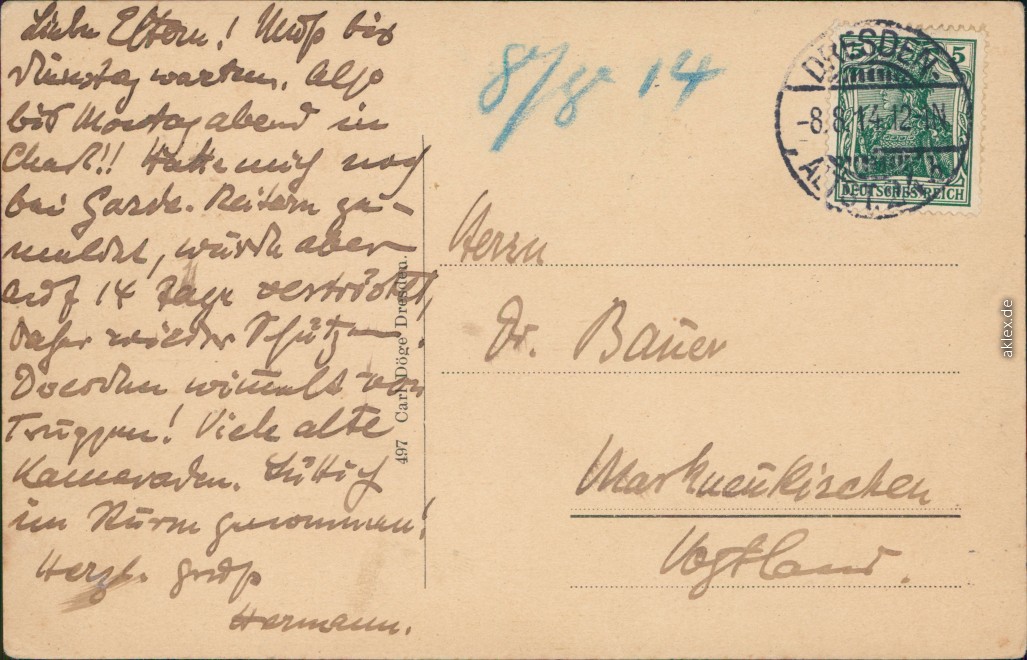 Liebe Eltern! Muß bis
Dienstag warten. Also
bis Montag abend in
Chaß!! Hatte mich noch
bei Garde-Reitern ge-
meldet, wurde aber
auf 14 Tage vertröstet,
daher wieder Schützen.
Dresden wimmelt von
Truppen! Viele alte
Kameraden. Lüttich
im Sturm genommen!
Herzl. Gruß
Hermann.
497 Carl Döge Dresden.
8/8 14
DRESDEN-
-8.8.14.12-1N
ALTST.
5 5
DEUTSCHES REICH
Herrn
Dr. Bauer
Markneukirchen
Vogtland.
aklex.de